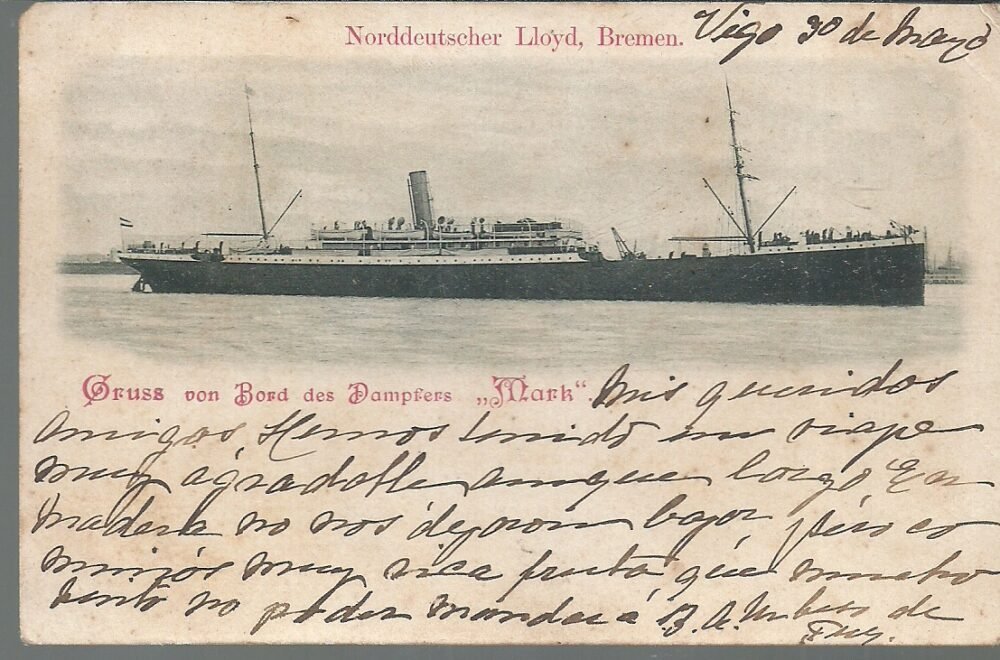 Norddeutscher Lloyd, Bremen.
Vigo 30 de Mayo
Gruss von Bord des Dampfers „Mark“.
Mis queridos
Amigos, Hemos tenido un viage
muy agradable aunque largo En
Madera no nos dejaron bajar, pero co
mimos muy rica fruta que mucho
sento no poder mandar á B. A. Un beso de